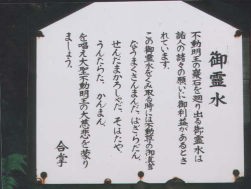 御霊水
不動明王の霊石を廻り出る御霊水は
諸人の諸々の願いに御利益があるとさ
れています。
この御霊水をくみ取る時には不動尊の御真言
なうまくさんまんだ、ばざらだん、
せんだまかろしゃだ、そはたや、
うんたらた、かんまん、
を唱え大聖不動明王の大慈悲を蒙り
ましょう。
合掌